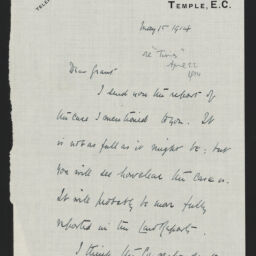 TELE
TEMPLE, E.C.
May 15 1914
re "Times"
April 22
1914
Dear Grant
I send now the report of
the case I mentioned to you. It
is not as full as it might be; but
you will see how clear the case is.
It will probably be more fully
reported in the Law Reports.
I think the